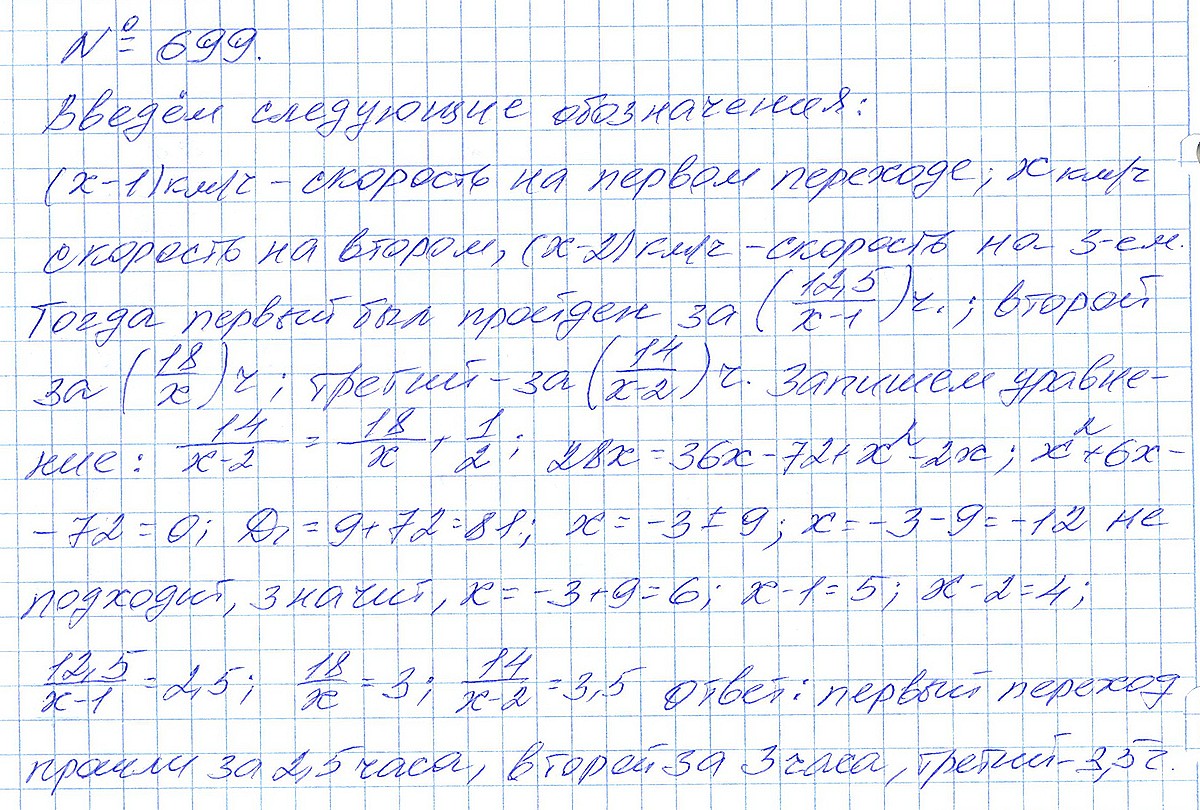 № 699.
Введём следующие обозначения:
(x-1) км/ч - скорость на первом переходе; x км/ч
скорость на втором, (x-2) км/ч - скорость на 3-ем.
Тогда первый был пройден за (12,5/(x-1)) ч.; второй
за (18/x) ч; третий - за (14/(x-2)) ч. Запишем уравне-
ние: 14/(x-2) = 18/x + 1/2; 28x = 36x - 72 + x² - 2x; x² + 6x -
- 72 = 0; D₁ = 9 + 72 = 81; x = -3 ± 9; x = -3 - 9 = -12 не
подходит, значит, x = -3 + 9 = 6; x - 1 = 5; x - 2 = 4;
12,5/(x-1) = 2,5; 18/x = 3; 14/(x-2) = 3,5 Ответ: первый переход
прошли за 2,5 часа, второй за 3 часа, третий - 3,5 ч.